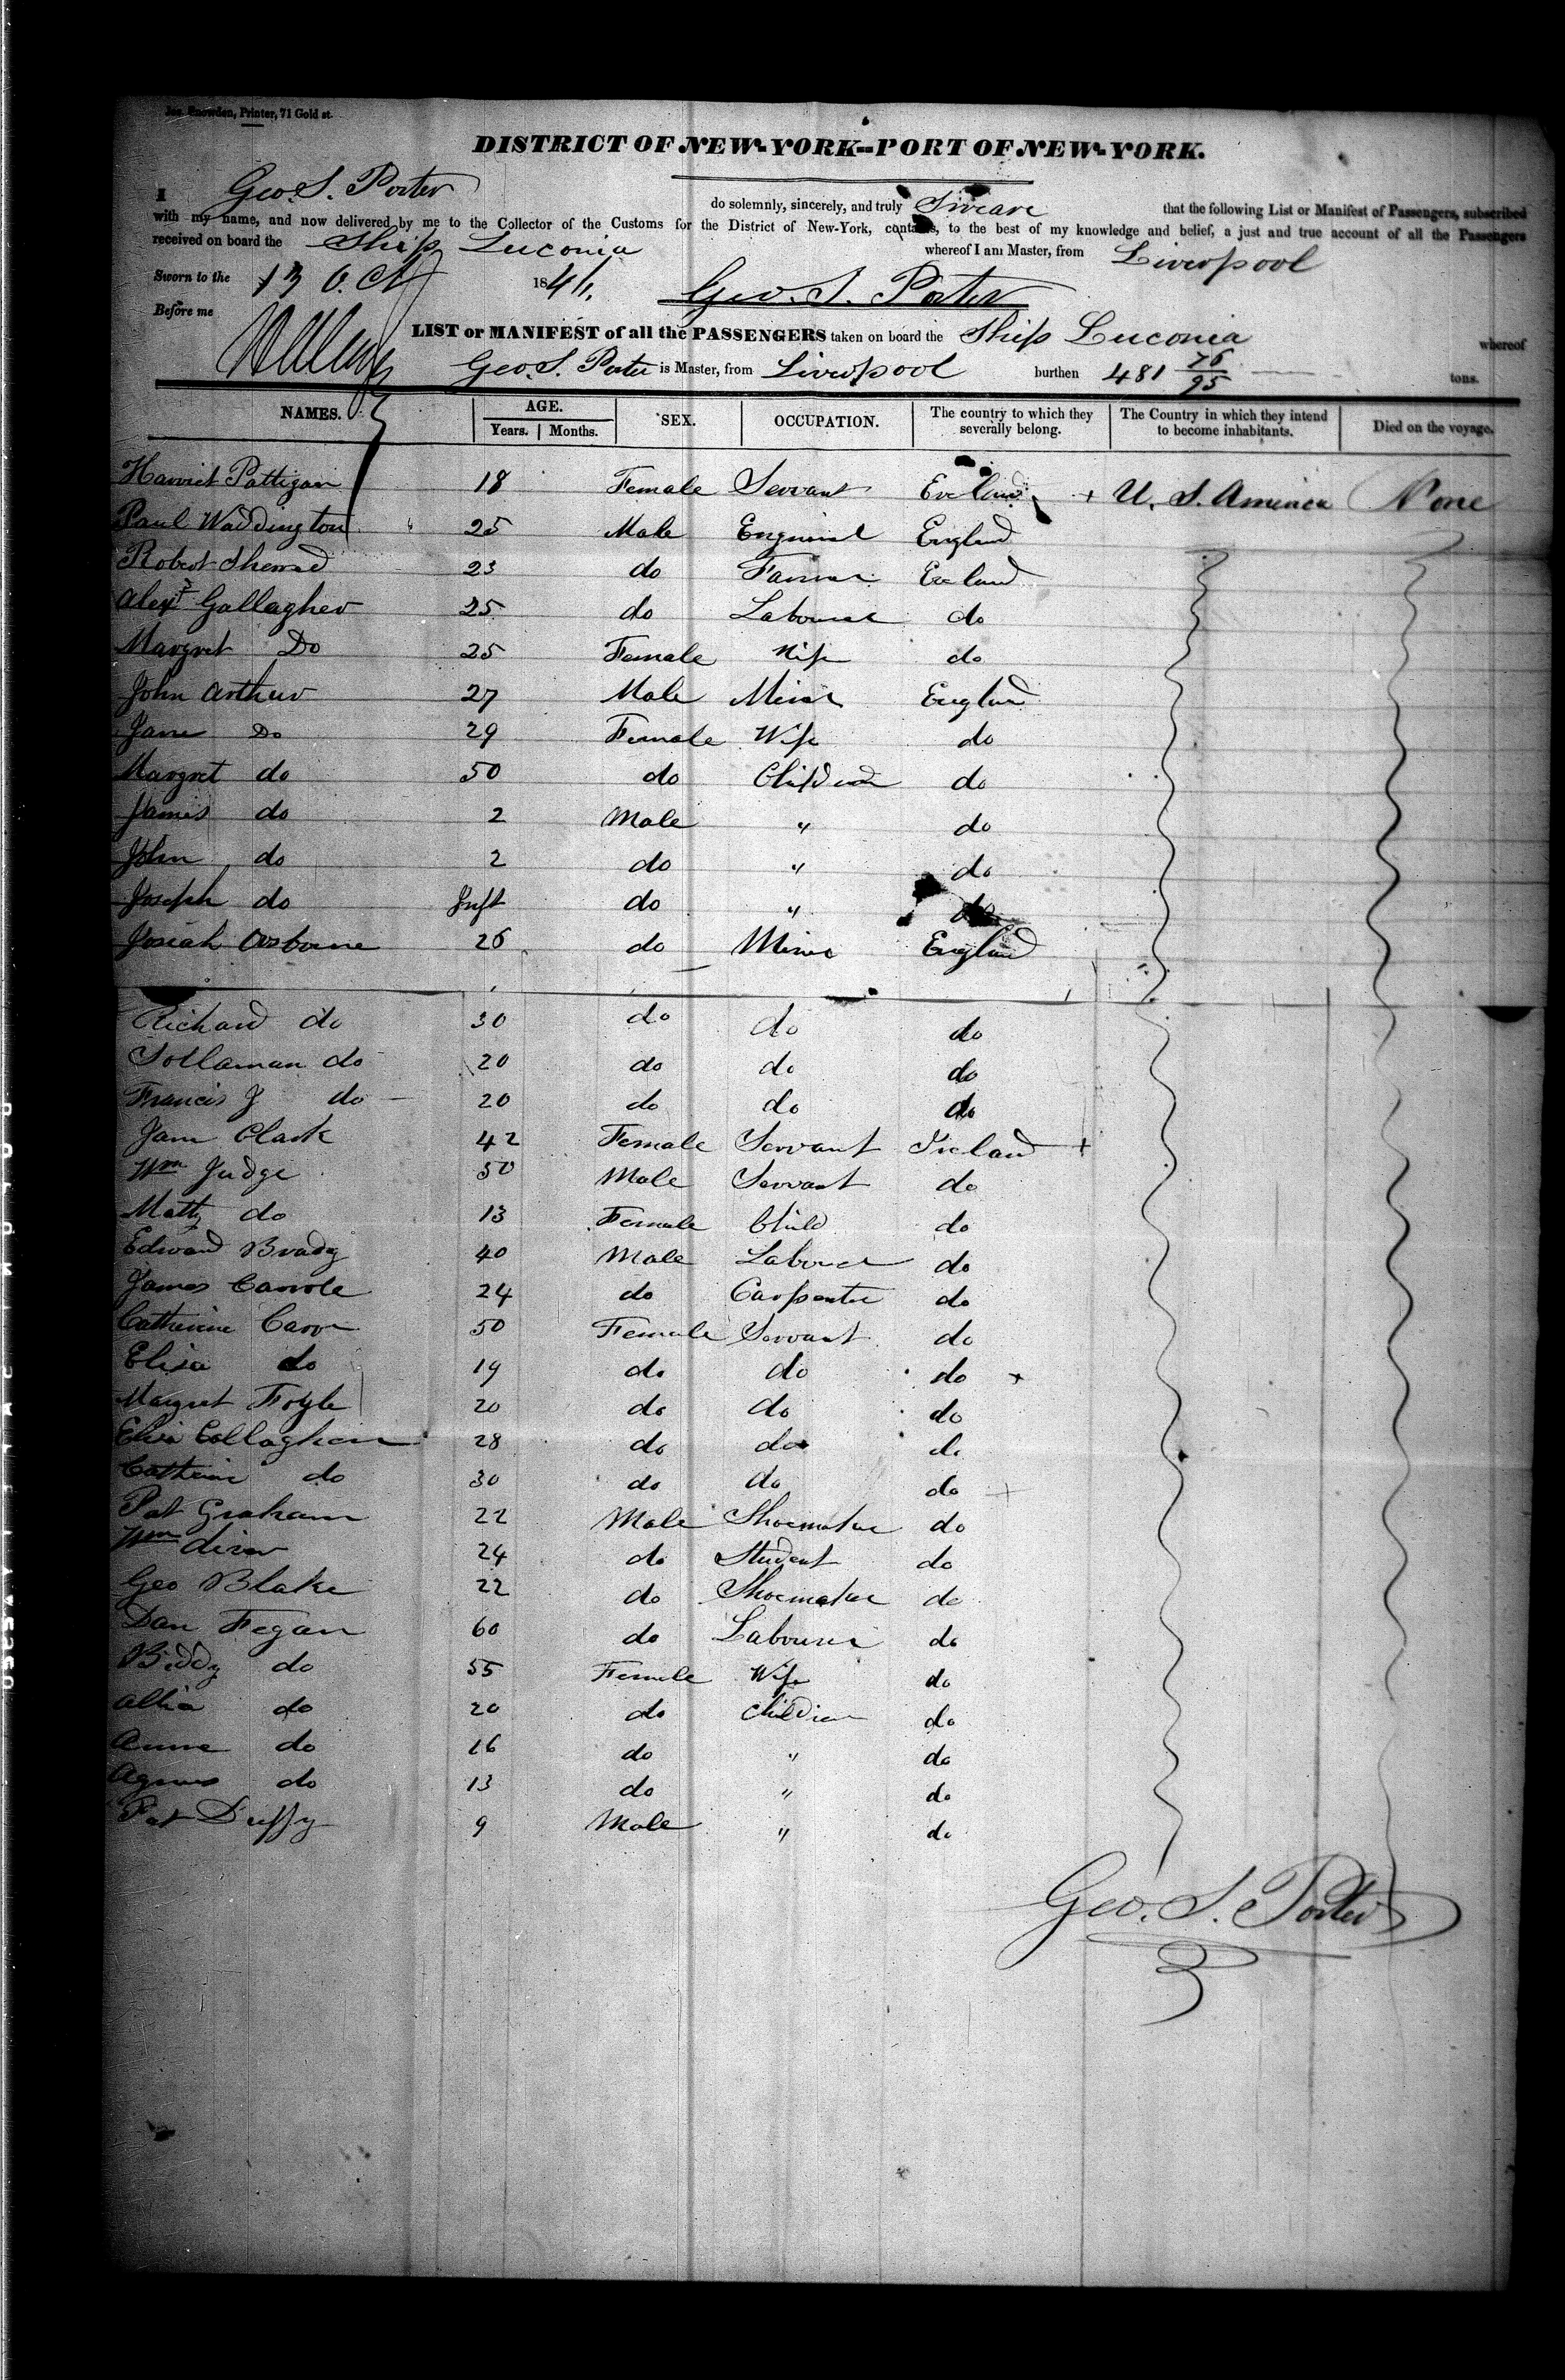 Jas. Snowden, Printer, 71 Gold st.
DISTRICT OF NEW-YORK--PORT OF NEW-YORK.
I Geo. S. Porter do solemnly, sincerely, and truly Sweare that the following List or Manifest of Passengers, subscribed
with my name, and now delivered by me to the Collector of the Customs for the District of New-York, contains, to the best of my knowledge and belief, a just and true account of all the Passengers
received on board the Ship Luconia whereof I am Master, from Liverpool
Sworn to the 13 Oct 1841. Geo. S. Porter
Before me
LIST or MANIFEST of all the PASSENGERS taken on board the Ship Luconia whereof
Geo. S. Porter is Master, from Liverpool burthen 481 76/95 tons.
NAMES. AGE. Years. Months. SEX. OCCUPATION. The country to which they severally belong. The Country in which they intend to become inhabitants. Died on the voyage.
Harriet Pattigan 18 Female Servant U. S. America None
Paul Waddington 25 Male England
Robert 23 do Farmer
Alexr Gallagher 25 do Labourer do
Margret Do 25 Female Wife do
John Arthur 27 Male Miner England
Jane Do 29 Female Wife do
Margret do 50 do Children do
James do 2 Male " do
John do 2 do " do
Joseph do Inft do " do
Josiah Osborne 26 do Miner England
Richard do 30 do do do
Sollaman do 20 do do do
Francis J do 20 do do do
Jane Clark 42 Female Servant Ireland
Wm Judge 50 Male Servant do
Matty do 13 Female Child do
Edward Brady 40 Male Labourer do
James Carrole 24 do Carpenter do
Catherine Carr 50 Female Servant do
Elisa do 19 do do do
Margret Foyle 20 do do do
Elisa Collaghan 28 do do do
Catherine do 30 do do do
Pat Graham 22 Male Shoemaker do
Wm 24 do Student do
Geo Blake 22 do Shoemaker do
Dan Fegan 60 do Labourer do
Biddy do 55 Female Wife do
do 20 do Children do
Anne do 16 do " do
Agnes do 13 do " do
Pat Duffy 9 Male " do
Geo. S. Porter